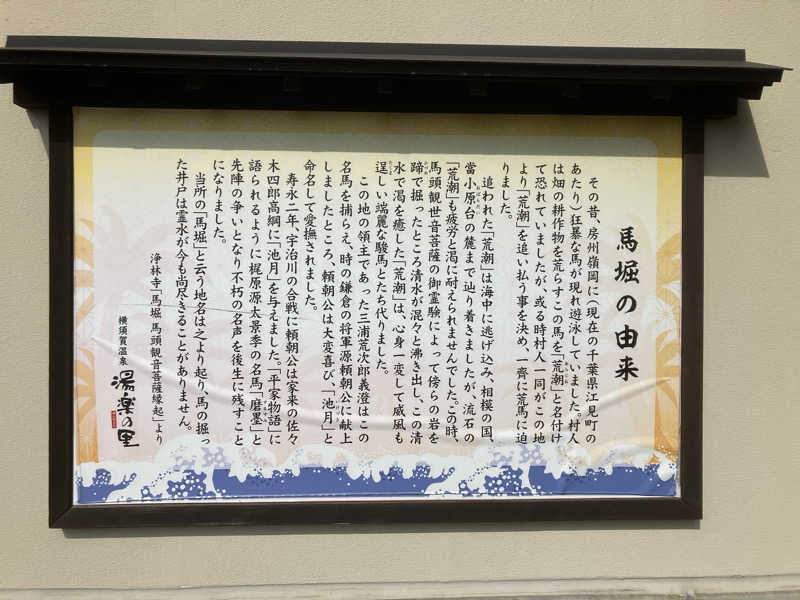 馬堀の由来
その昔、房州嶺岡に(現在の千葉県江見町の
あたり)狂暴な馬が現れ遊泳していました。村人
は畑の耕作物を荒らすこの馬を「荒潮」と名付け
て恐れていましたが、或る時村人一同がこの地
より「荒潮」を追い払う事を決め、一齊に荒馬に迫
りました。
追われた「荒潮」は海中に逃げ込み、相模の国、
當小原台の麓まで辿り着きましたが、流石の
「荒潮」も疲労と渇に耐えられませんでした。この時、
馬頭観世音菩薩の御霊験によって傍らの岩を
蹄で掘ったところ清水が混々と沸き出し、この清
水で渇を癒した「荒潮」は、心身一変して威風も
逞しい端麗な駿馬とたち代りました。
この地の領主であった三浦荒次郎義澄はこの
名馬を捕らえ、時の鎌倉の将軍源頼朝公に献上
しましたところ、頼朝公は大変喜び、「池月」と
命名して愛撫されました。
寿永二年、宇治川の合戦に頼朝公は家来の佐々
木四郎高綱に「池月」を与えました。「平家物語」に
語られるように梶原源太景季の名馬「磨墨」と
先陣の争いとなり不朽の名声を後生に残すこと
になりました。
当所の「馬堀」と云う地名は之より起り、馬の掘っ
た井戸は霊水が今も尚尽きることがありません。
浄林寺「馬堀 馬頭観音菩薩縁起」より
横須賀温泉
湯楽の里